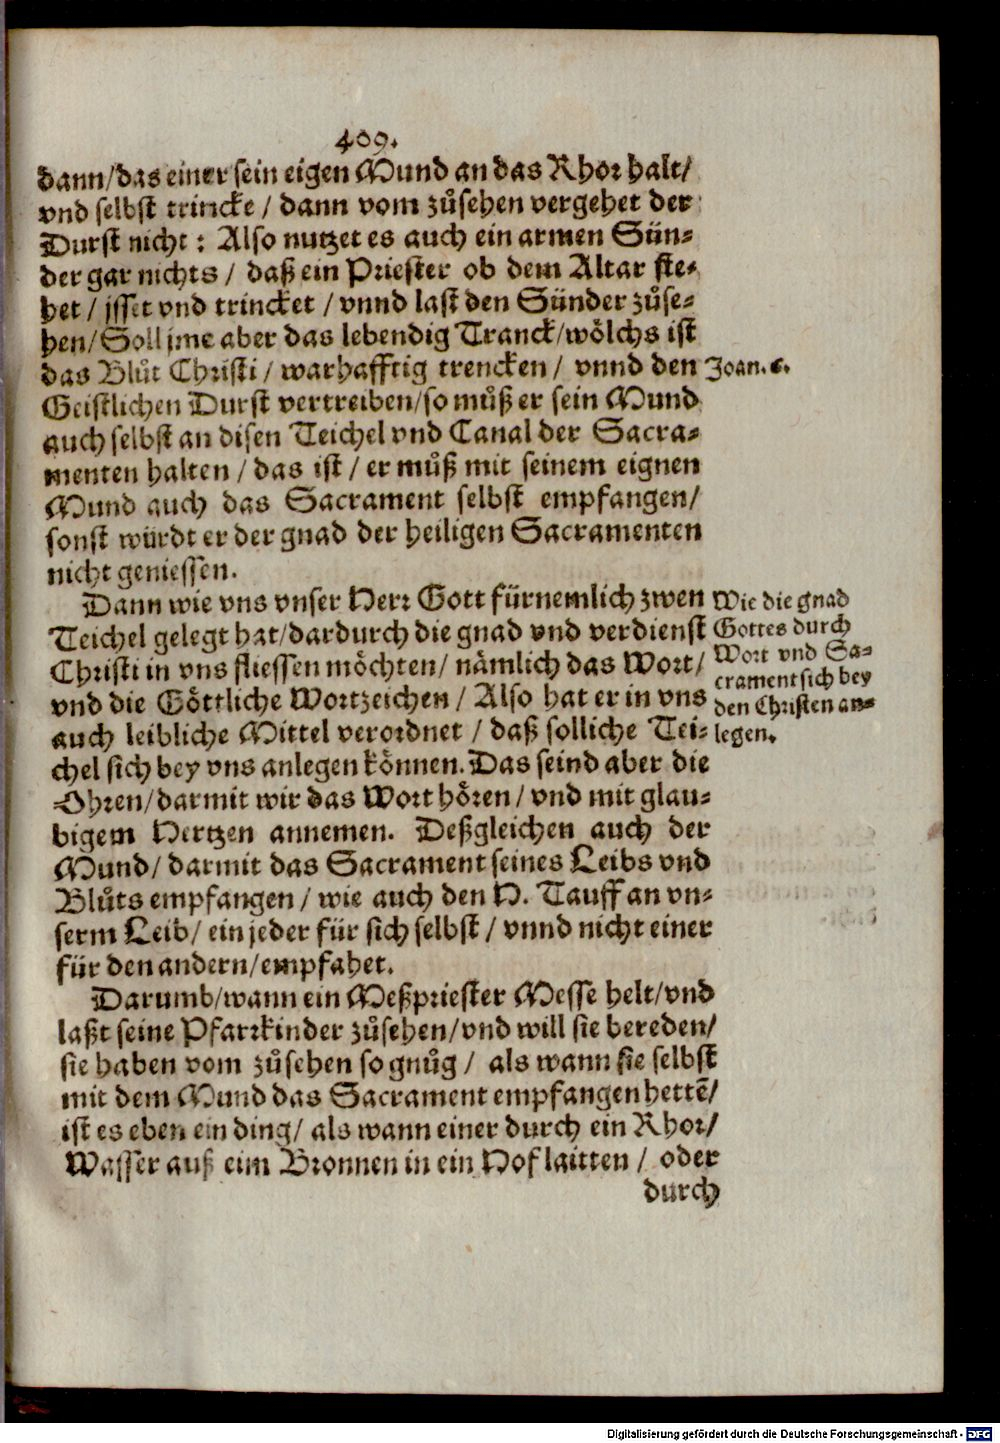 409.
dann/das einer sein eigen Mund an das Rhor halt/
vnd selbst trincke / dann vom zůsehen vergehet der
Durst nicht: Also nutzet es auch ein armen Sün-
der gar nichts / daß ein Priester ob dem Altar ste-
het / jsset vnd trincket / vnnd last den Sünder zůse-
hen/Soll jme aber das lebendig Tranck/wölchs ist
das Blůt Christi / warhafftig trencken / vnnd den
Joan. 6.
Geistlichen Durst vertreiben/so můß er sein Mund
auch selbst an disen Teichel vnd Canal der Sacra-
menten halten / das ist / er můß mit seinem eignen
Mund auch das Sacrament selbst empfangen/
sonst würdt er der gnad der heiligen Sacramenten
nicht geniessen.
Dann wie vns vnser Herr Gott fürnemlich zwen
Teichel gelegt hat/dardurch die gnad vnd verdienst
Christi in vns fliessen möchten/ nämlich das Wort/
vnd die Göttliche Wortzeichen / Also hat er in vns
auch leibliche Mittel verordnet / daß solliche Tei-
chel sich bey vns anlegen können. Das seind aber die
Ohren/darmit wir das Wort hören / vnd mit glau-
bigem Hertzen annemen. Deßgleichen auch der
Mund/ darmit das Sacrament seines Leibs vnd
Blůts empfangen / wie auch den H. Tauff an vn-
serm Leib/ ein jeder für sich selbst / vnnd nicht einer
für den andern/empfahet.
Wie die gnad
Gottes durch
Wort vnd Sa-
crament sich bey
den Christen an-
legen.
Darumb/wann ein Meßpriester Messe helt/vnd
laßt seine Pfarrkinder zůsehen/vnd will sie bereden/
sie haben vom zůsehen so gnůg / als wann sie selbst
mit dem Mund das Sacrament empfangen hettẽ/
ist es eben ein ding/ als wann einer durch ein Rhor/
Wasser auß eim Bronnen in ein Hof laitten / oder
durch
Digitalisierung gefördert durch die Deutsche Forschungsgemeinschaft - DFG